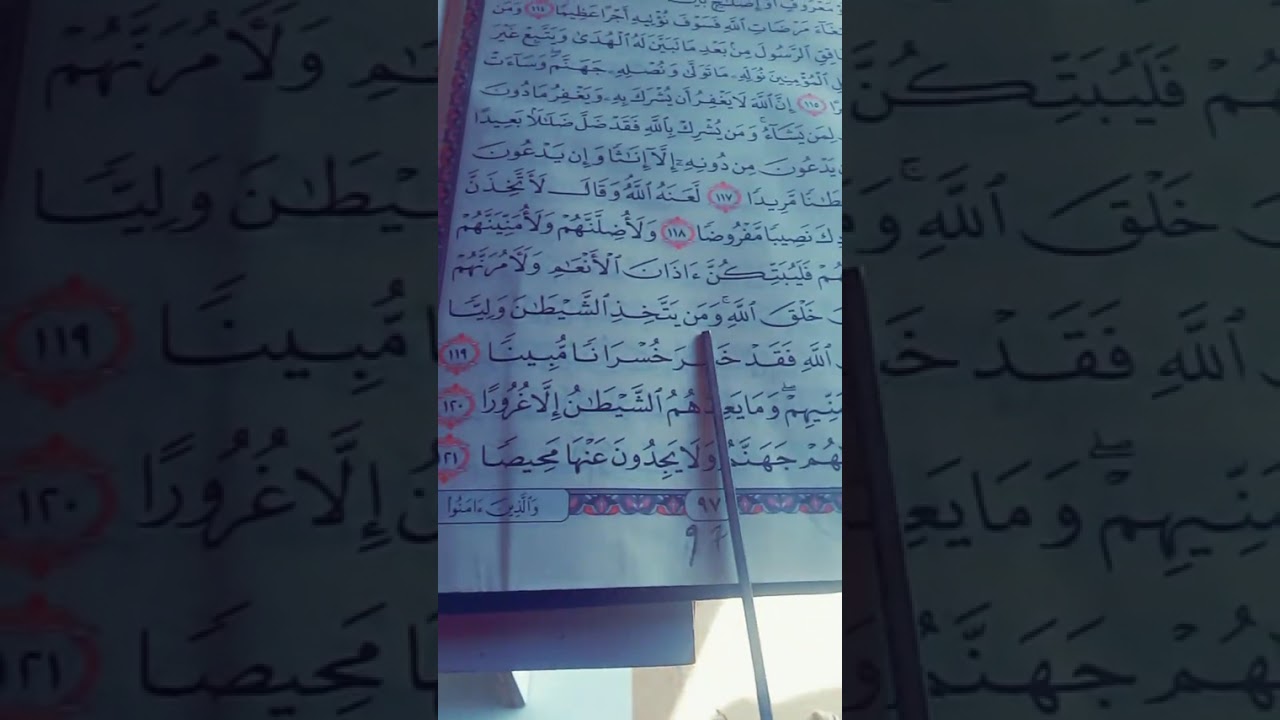 مَعْرُوفٍ أَوْ إِصْلَٰحٍۭ بَيْنَ
مَرْضَاتِ ٱللَّهِ فَسَوْفَ نُؤْتِيهِ أَجْرًا عَظِيمًا ١١٤ وَمَن
ٱلرَّسُولَ مِنۢ بَعْدِ مَا تَبَيَّنَ لَهُ ٱلْهُدَىٰ وَيَتَّبِعْ غَيْرَ
ٱلْمُؤْمِنِينَ نُوَلِّهِۦ مَا تَوَلَّىٰ وَنُصْلِهِۦ جَهَنَّمَ ۖ وَسَآءَتْ
١١٥ إِنَّ ٱللَّهَ لَا يَغْفِرُ أَن يُشْرَكَ بِهِۦ وَيَغْفِرُ مَا دُونَ
لِمَن يَشَآءُ ۚ وَمَن يُشْرِكْ بِٱللَّهِ فَقَدْ ضَلَّ ضَلَٰلًۢا بَعِيدًا
يَدْعُونَ مِن دُونِهِۦٓ إِلَّآ إِنَٰثًا وَإِن يَدْعُونَ
مَّرِيدًا ١١٧ لَّعَنَهُ ٱللَّهُ ۘ وَقَالَ لَأَتَّخِذَنَّ
نَصِيبًا مَّفْرُوضًا ١١٨ وَلَأُضِلَّنَّهُمْ وَلَأُمَنِّيَنَّهُمْ
فَلَيُبَتِّكُنَّ ءَاذَانَ ٱلْأَنْعَٰمِ وَلَءَامُرَنَّهُمْ
خَلْقَ ٱللَّهِ ۚ وَمَن يَتَّخِذِ ٱلشَّيْطَٰنَ وَلِيًّا
ٱللَّهِ فَقَدْ خَسِرَ خُسْرَانًا مُّبِينًا ١١٩
وَمَا يَعِدُهُمُ ٱلشَّيْطَٰنُ إِلَّا غُرُورًا ١٢٠
جَهَنَّمُ وَلَا يَجِدُونَ عَنْهَا مَحِيصًا ١٢١
٩٧
وَٱلَّذِينَ ءَامَنُوا۟
97